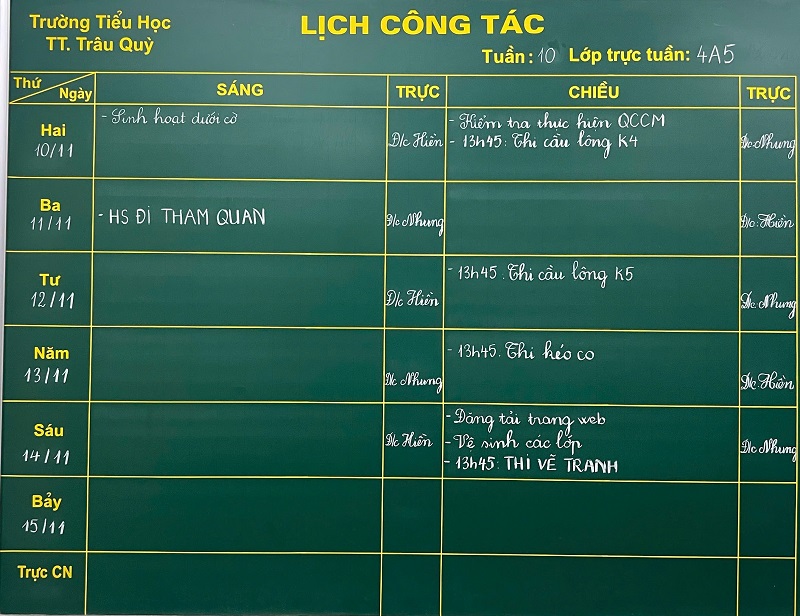 Trường Tiểu Học
TT. Trâu Quỳ
LỊCH CÔNG TÁC
Tuần: 10 Lớp trực tuần: 4A5
Thứ
Ngày
SÁNG
TRỰC
CHIỀU
TRỰC
Hai
10/11
- Sinh hoạt dưới cờ
Đ/c Hiền
- Kiểm tra thực hiện QCCM
- 13h45: Thi cầu lông K4
Đ/c: Nhung
Ba
11/11
- HS ĐI THAM QUAN
Đ/c Nhung
Đ/c: Hiền
Tư
12/11
Đ/c Hiền
- 13h45. Thi cầu lông K5
Đ/c. Nhung
Năm
13/11
Đ/c Nhung
- 13h45. Thi kéo co
Đ/c. Hiền
Sáu
14/11
Đ/c Hiền
- Đăng tải trang web
- Vệ sinh các lớp
- 13h45: THI VẼ TRANH
Đ/c Nhung
Bảy
15/11
Trực CN